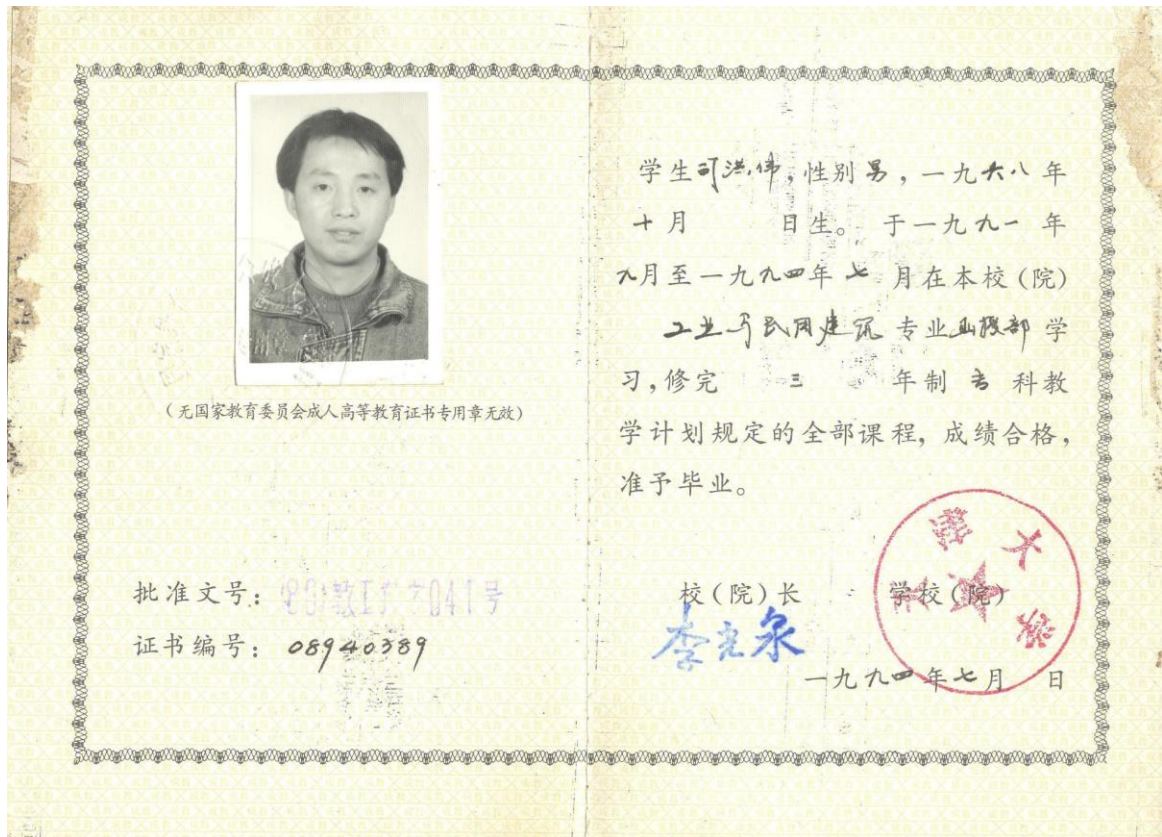 (无国家教育委员会成人高等教育证书专用章无效)
批准文号:
证书编号: 08940389
学生司洪伟,性别男,一九六八年
十月 日生。于一九九一年
九月至一九九四年七月在本校(院)
工业与民用建筑专业函授部学
习,修完 三 年制专科教
学计划规定的全部课程,成绩合格,
准予毕业。
校(院)长 学校(院)
一九九四年七月 日